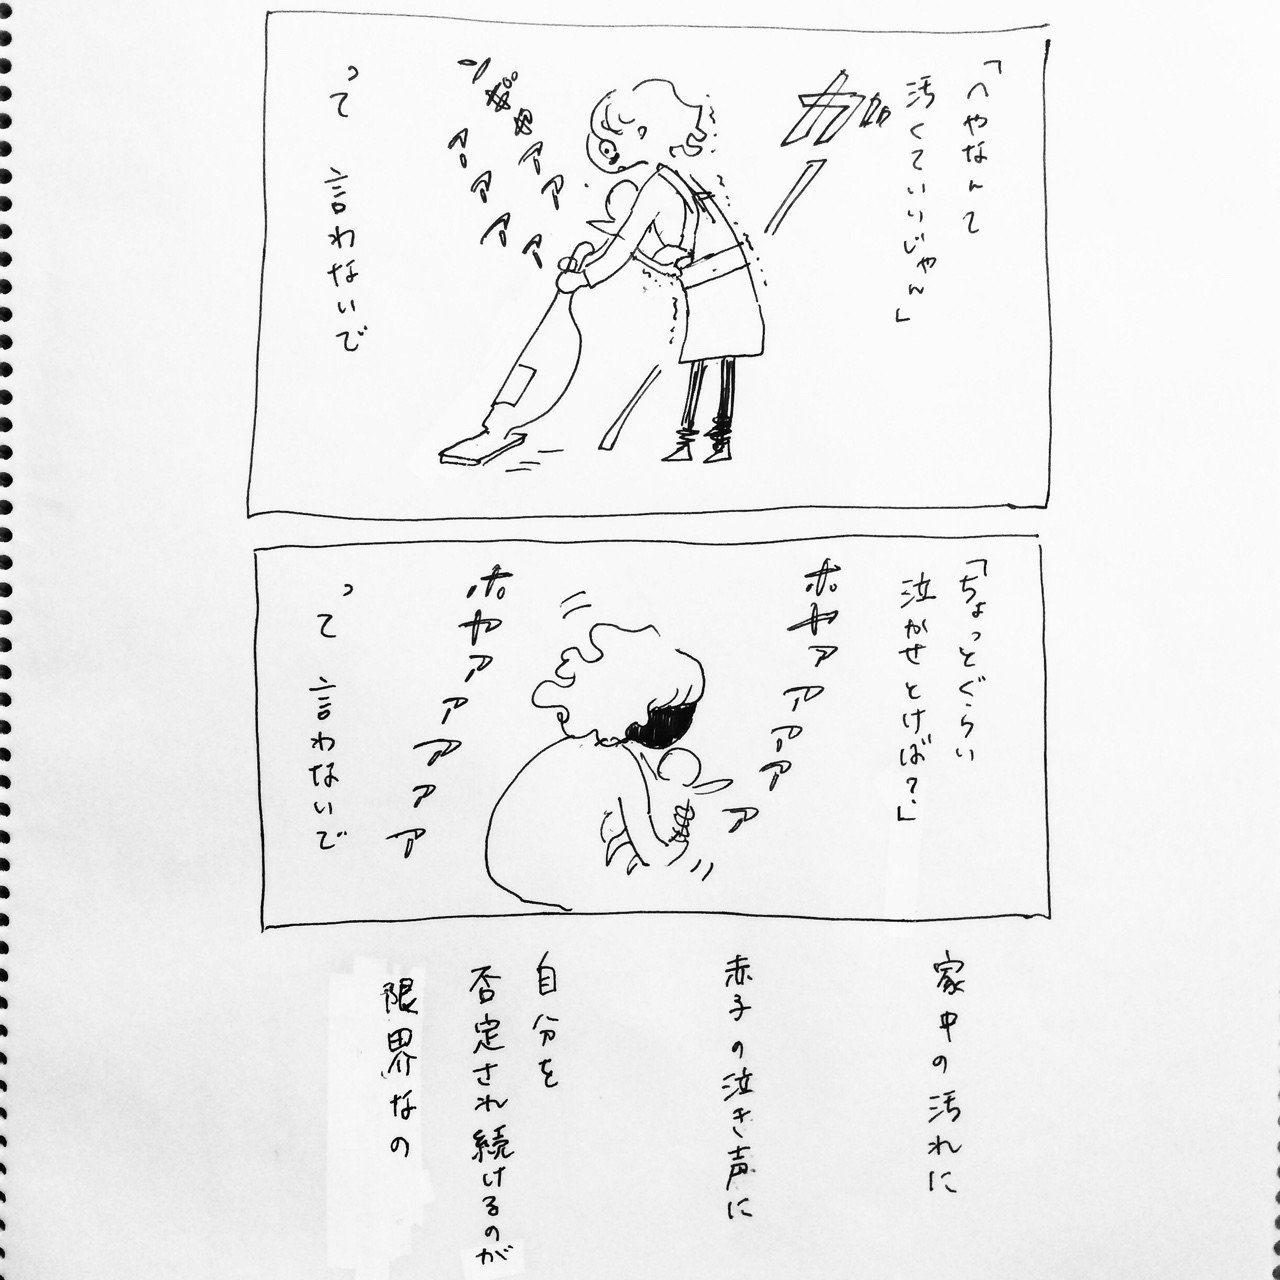 「へやなんて
汚くていいじゃん」
ガガガ
ー
ギャアア
アアアア
って 言わないで
「ちょっとぐらい
泣かせとけば?」
ホギャアアアアア
ホギャアアアアア
って 言わないで
家中の汚れに
赤子の泣き声に
自分を
否定され続けるのが
限界なの